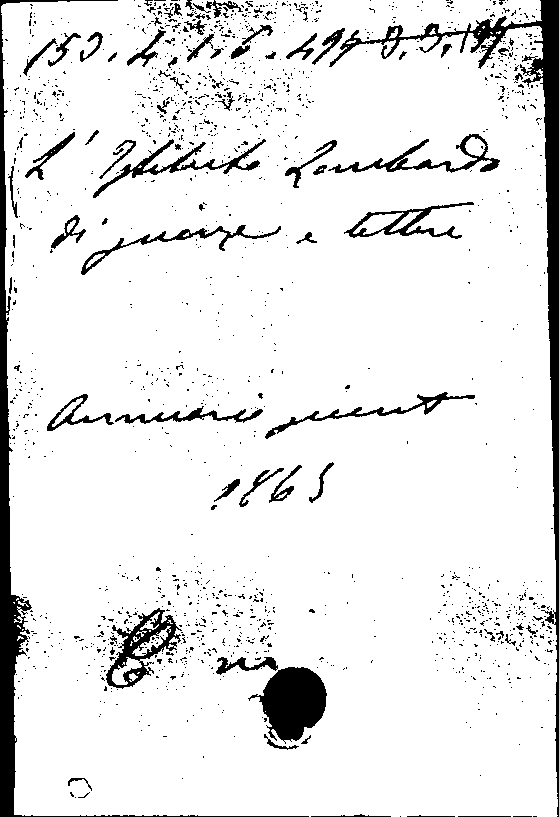 153.4.1.6.494 3.3.194
L'Istituto Lombardo
di scienze e lettere
Annuario
1865